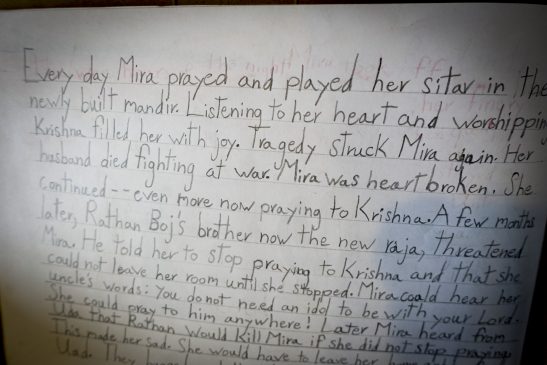 Every day Mira prayed and played her sitar in the
newly built mandir. Listening to her heart and worshippin
Krishna filled her with joy. Tragedy struck Mira again. Her
husband died fighting at war. Mira was heartbroken. She
continued -- even more now praying to Krishna. A few months
later, Rathan Boj's brother now the new raja, threatened
Mira. He told her to stop praying to Krishna and that she
could not leave her room until she stopped. Mira could hear her
uncle's words: You do not need an idol to be with your Lord.
She could pray to him anywhere! Later Mira heard from
Uda that Rathan would kill Mira if she did not stop praying
This made her sad. She would have to leave her
Uad. They